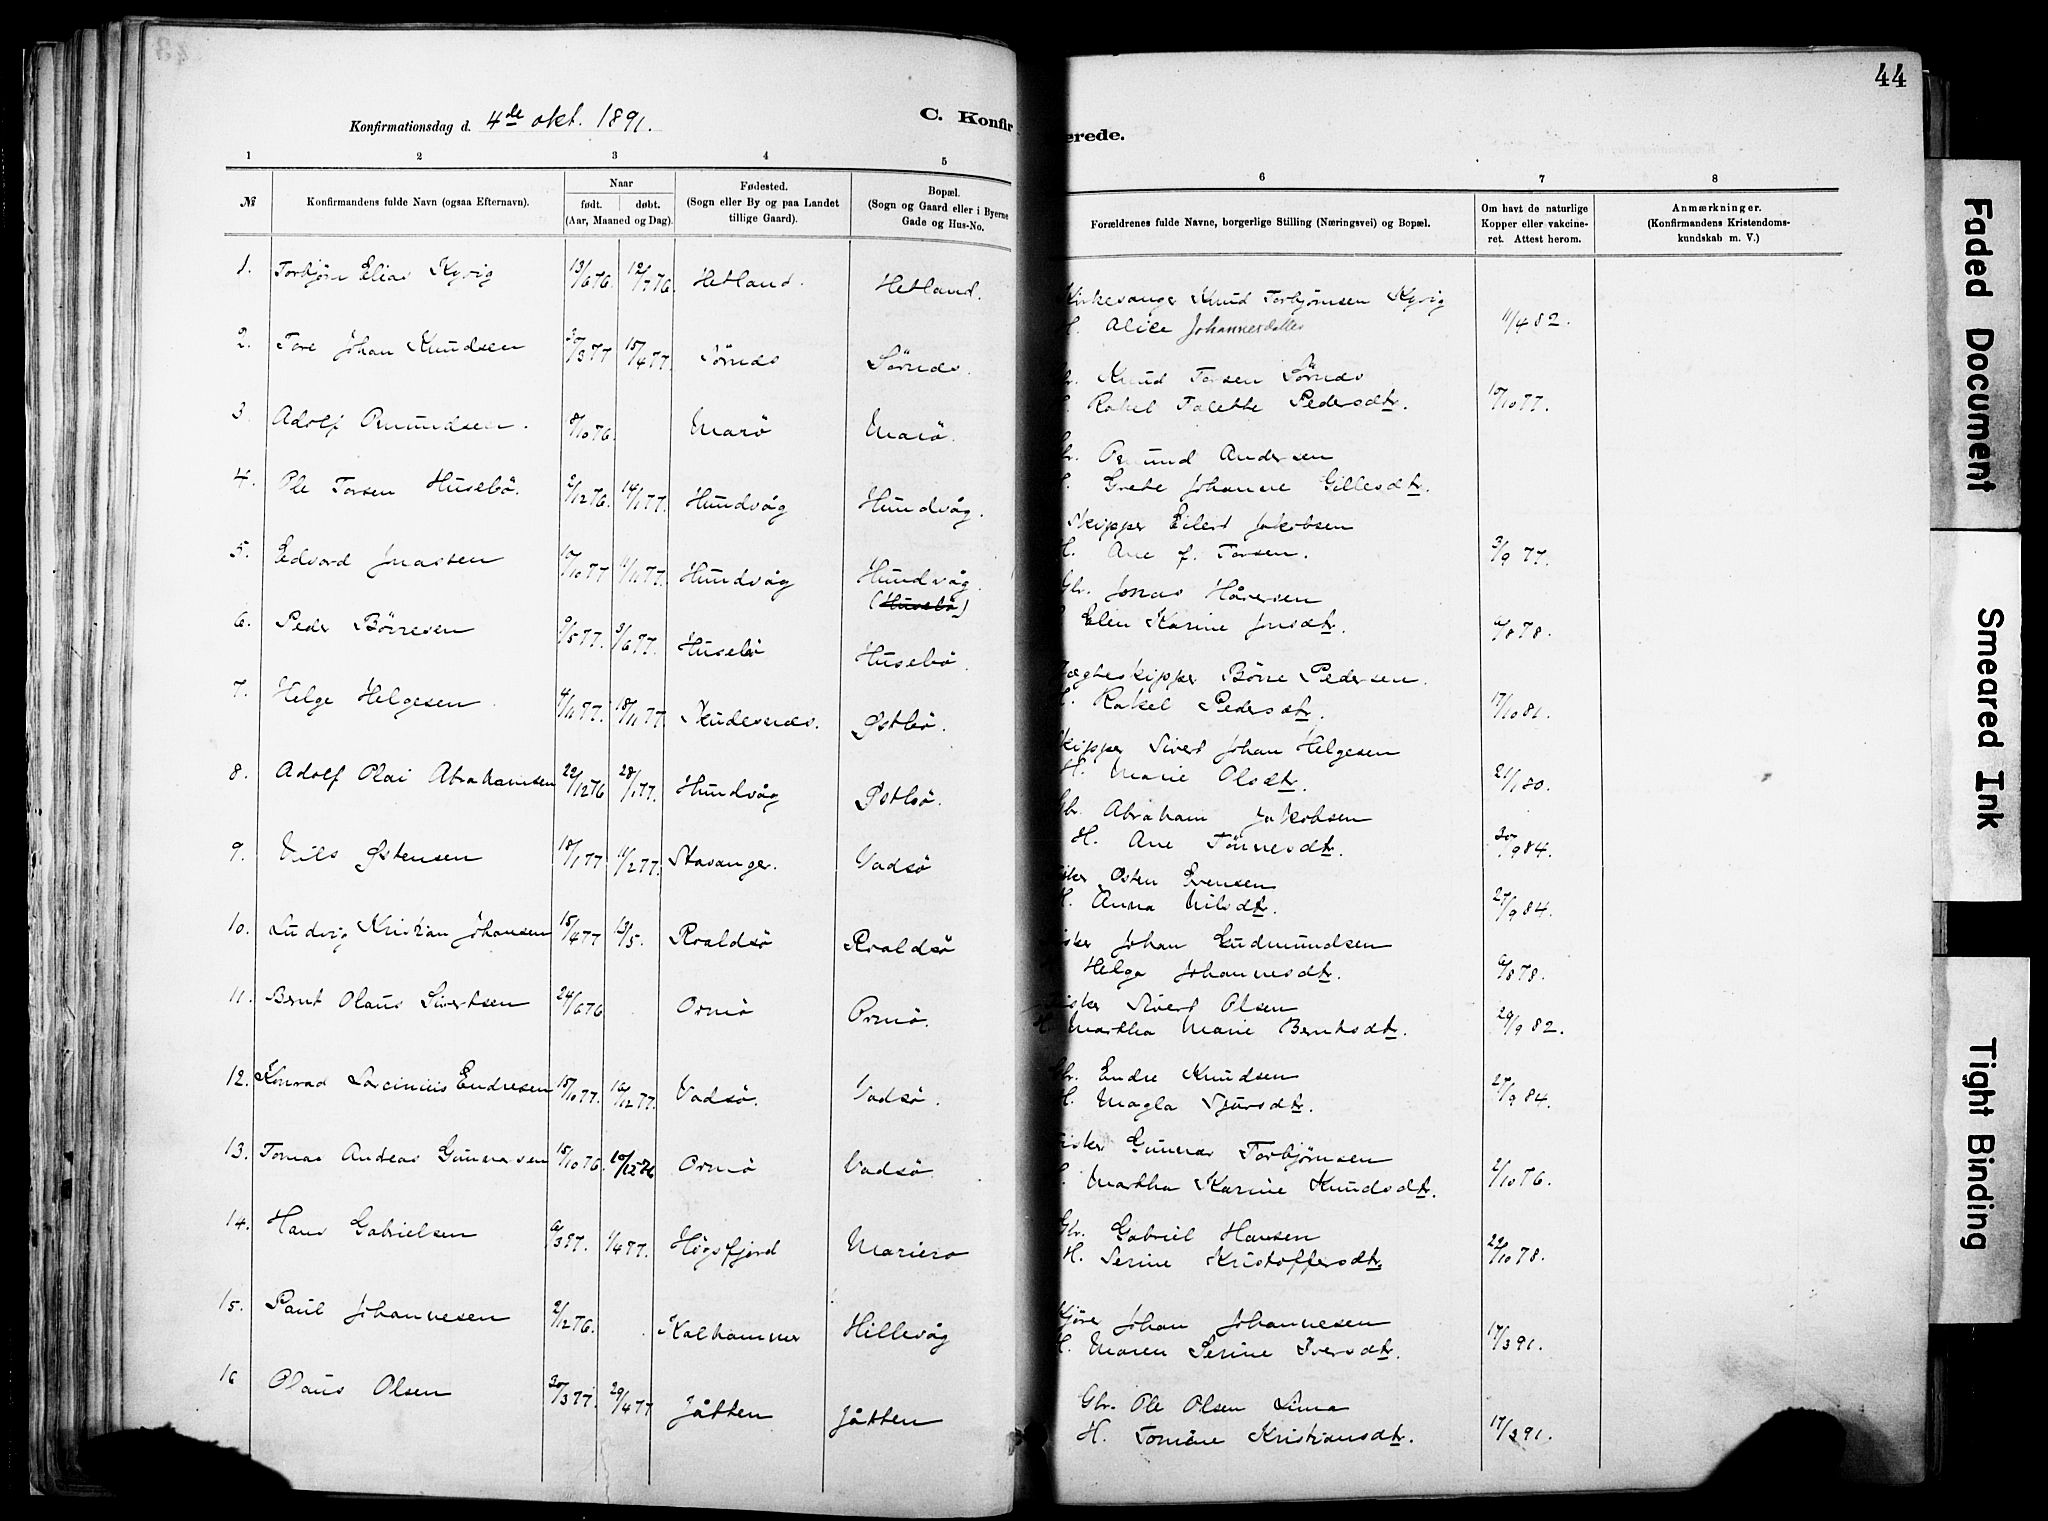 44
Konfirmationsdag d. 4de okt. 1891.
C. Konfir
erede.
1 2 3 4 5 6 7 8
№
Konfirmandens fulde Navn (ogsaa Efternavn).
Naar
født. døbt.
(Aar, Maaned og Dag).
Fødested.
(Sogn eller By og paa Landet
tillige Gaard).
Bopæl.
(Sogn og Gaard eller i Byerne
Gade og Hus-No.
Forældrenes fulde Navne, borgerlige Stilling (Næringsvei) og Bopæl.
Om havt de naturlige
Kopper eller vakcine-
ret. Attest herom.
Anmærkninger.
(Konfirmandens Kristendoms-
kundskab m. V.)
1. Torbjörn Elias Kyvig 13/6 76. 12/7 76. Hetland. Hetland.
Kirkesanger Knud Torbjörnsen Kyvig
H. Alice Johannesdatter 11/4 82.
2. Tore Johan Knudsen 15/4 77. Sörnes Sörnes.
Knud Torsen Sörnes
Rakel Talette Pedersdtr. 15/10 77.
3. Adolf Osmundsen. 8/10 76. Marö Marö.
Gbr. Osmund Andersen
Grete Johanne Gillesdtr.
4. Ole Torsen Husebö. 2/12 76. 14/1 77. Hundvåg Hundvåg.
Skipper Eilert Jakobsen
H. Ane f. Torsen. 3/9 77.
5. Edvard Jnassen 10/10 77 11/11 77. Hundvåg Hundvåg.
(Husebö)
Gbr. Jonas Håversen
Elen Karine Jnsdtr. 6/8 78.
6. Peder Börresen 9/5 77. 3/6 77. Husebö Husebö.
Jægteskipper Börre Pedersen.
H. Rakel Pedersdtr. 17/10 81.
7. Helge Helgesen 4/11 77. 18/11 77. Skudesnes. Østbö.
Skipper Sivert Johan Helgesen
H. Marie Olsdtr. 21/1 80.
8. Adolf Olai Abrahamsen 22/12 76 28/1 77. Hundvåg Østbö.
Gbr. Abraham Jakobsen
H. Ane Tönnesdtr. 30/9 84.
9. Nils Østensen 18/1 77. 11/2 77. Stavanger. Vadsö
Fisker Osten Evensen
H. Anna Nilsdtr. 27/9 84.
10. Ludvig Kristian Johansen 15/4 77 13/5. Roaldsö Roaldsö
Fisker Johan Gudmundsen
Helga Johannesdtr. 6/8 78.
11. Bernt Olaus Sivertsen 24/6 76 Ormö Ormö.
Fisker Sivert Olsen
H. Martha Marie Berntsdtr. 29/9 82.
12. Konrad Endresen 15/10 77. 16/12 77. Vadsö. Vadsö.
Gbr. Endre Knudsen
H. Magla Sjursdtr. 27/9 84.
13. Tomas Andeas Gunnersen 15/10 76. 10/12 76 Ormö Vadsö.
Fisker Gunnar Torbjørnsen
H. Martha Karine Knudsdtr. 2/10 76.
14. Hans Gabrielsen 6/3 77. 1/4 77. Högsfjord Mariero
Gbr. Gabriel Hansen
H. Serine Kristoffersdtr. 22/10 78.
15. Paul Johannesen 2/12 76. Kalhammer Hillevåg
Kjörer Johan Johannesen
H. Maren Serine Iversdtr. 17/3 91.
16 Olaus Olsen 30/3 77. 29/4 77 Jåtten Jåtten
Gbr. Ole Olsen Lima
H. Tomine Kristiansdtr. 17/3 91.
Faded Document
Smeared Ink
Tight Binding